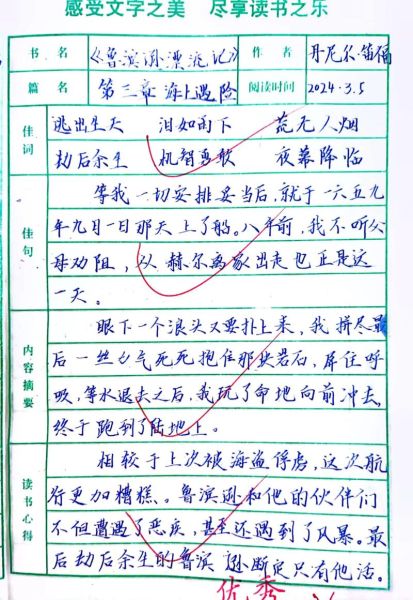 感受文字之美 尽享读书之乐
书名 《鲁滨逊漂流记》 作者 丹尼尔·笛福
篇名 第三章 海上遇险 阅读时间 2024.3.5
佳词
逃出生天 泪如雨下 荒无人烟
劫后余生 机智勇敢 夜幕降临
佳句
等我一切安排妥当后,就于一六五九
年九月一日那天上了船。八年前,我不听父
母劝阻,从赫尔离家出走也正是这
一天。
内容摘要
眼下一个浪头又要扑上来,我拼尽最
后一丝力气死死抱住那块岩石,屏住呼
吸,等水退去之后,我玩了命地向前冲去,
终于跑到了陆地上。
读书心得
相较于上次被海盗俘虏,这次航
行更加糟糕。鲁滨逊和他的伙伴们
不但遭遇了恶疾,甚至还遇到了风暴。最
后劫后余生的鲁滨逊断定只有他活。
优秀